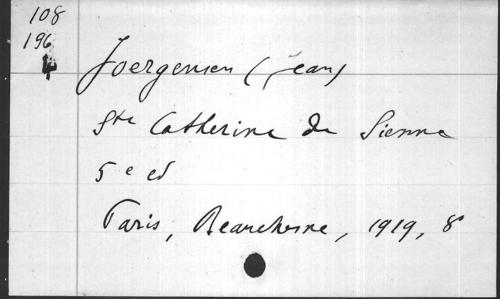 108
196
4
Joergensen (Jean)
Ste Catherine de Sienne
5e ed
Paris, Beauchesne, 1919, 8°